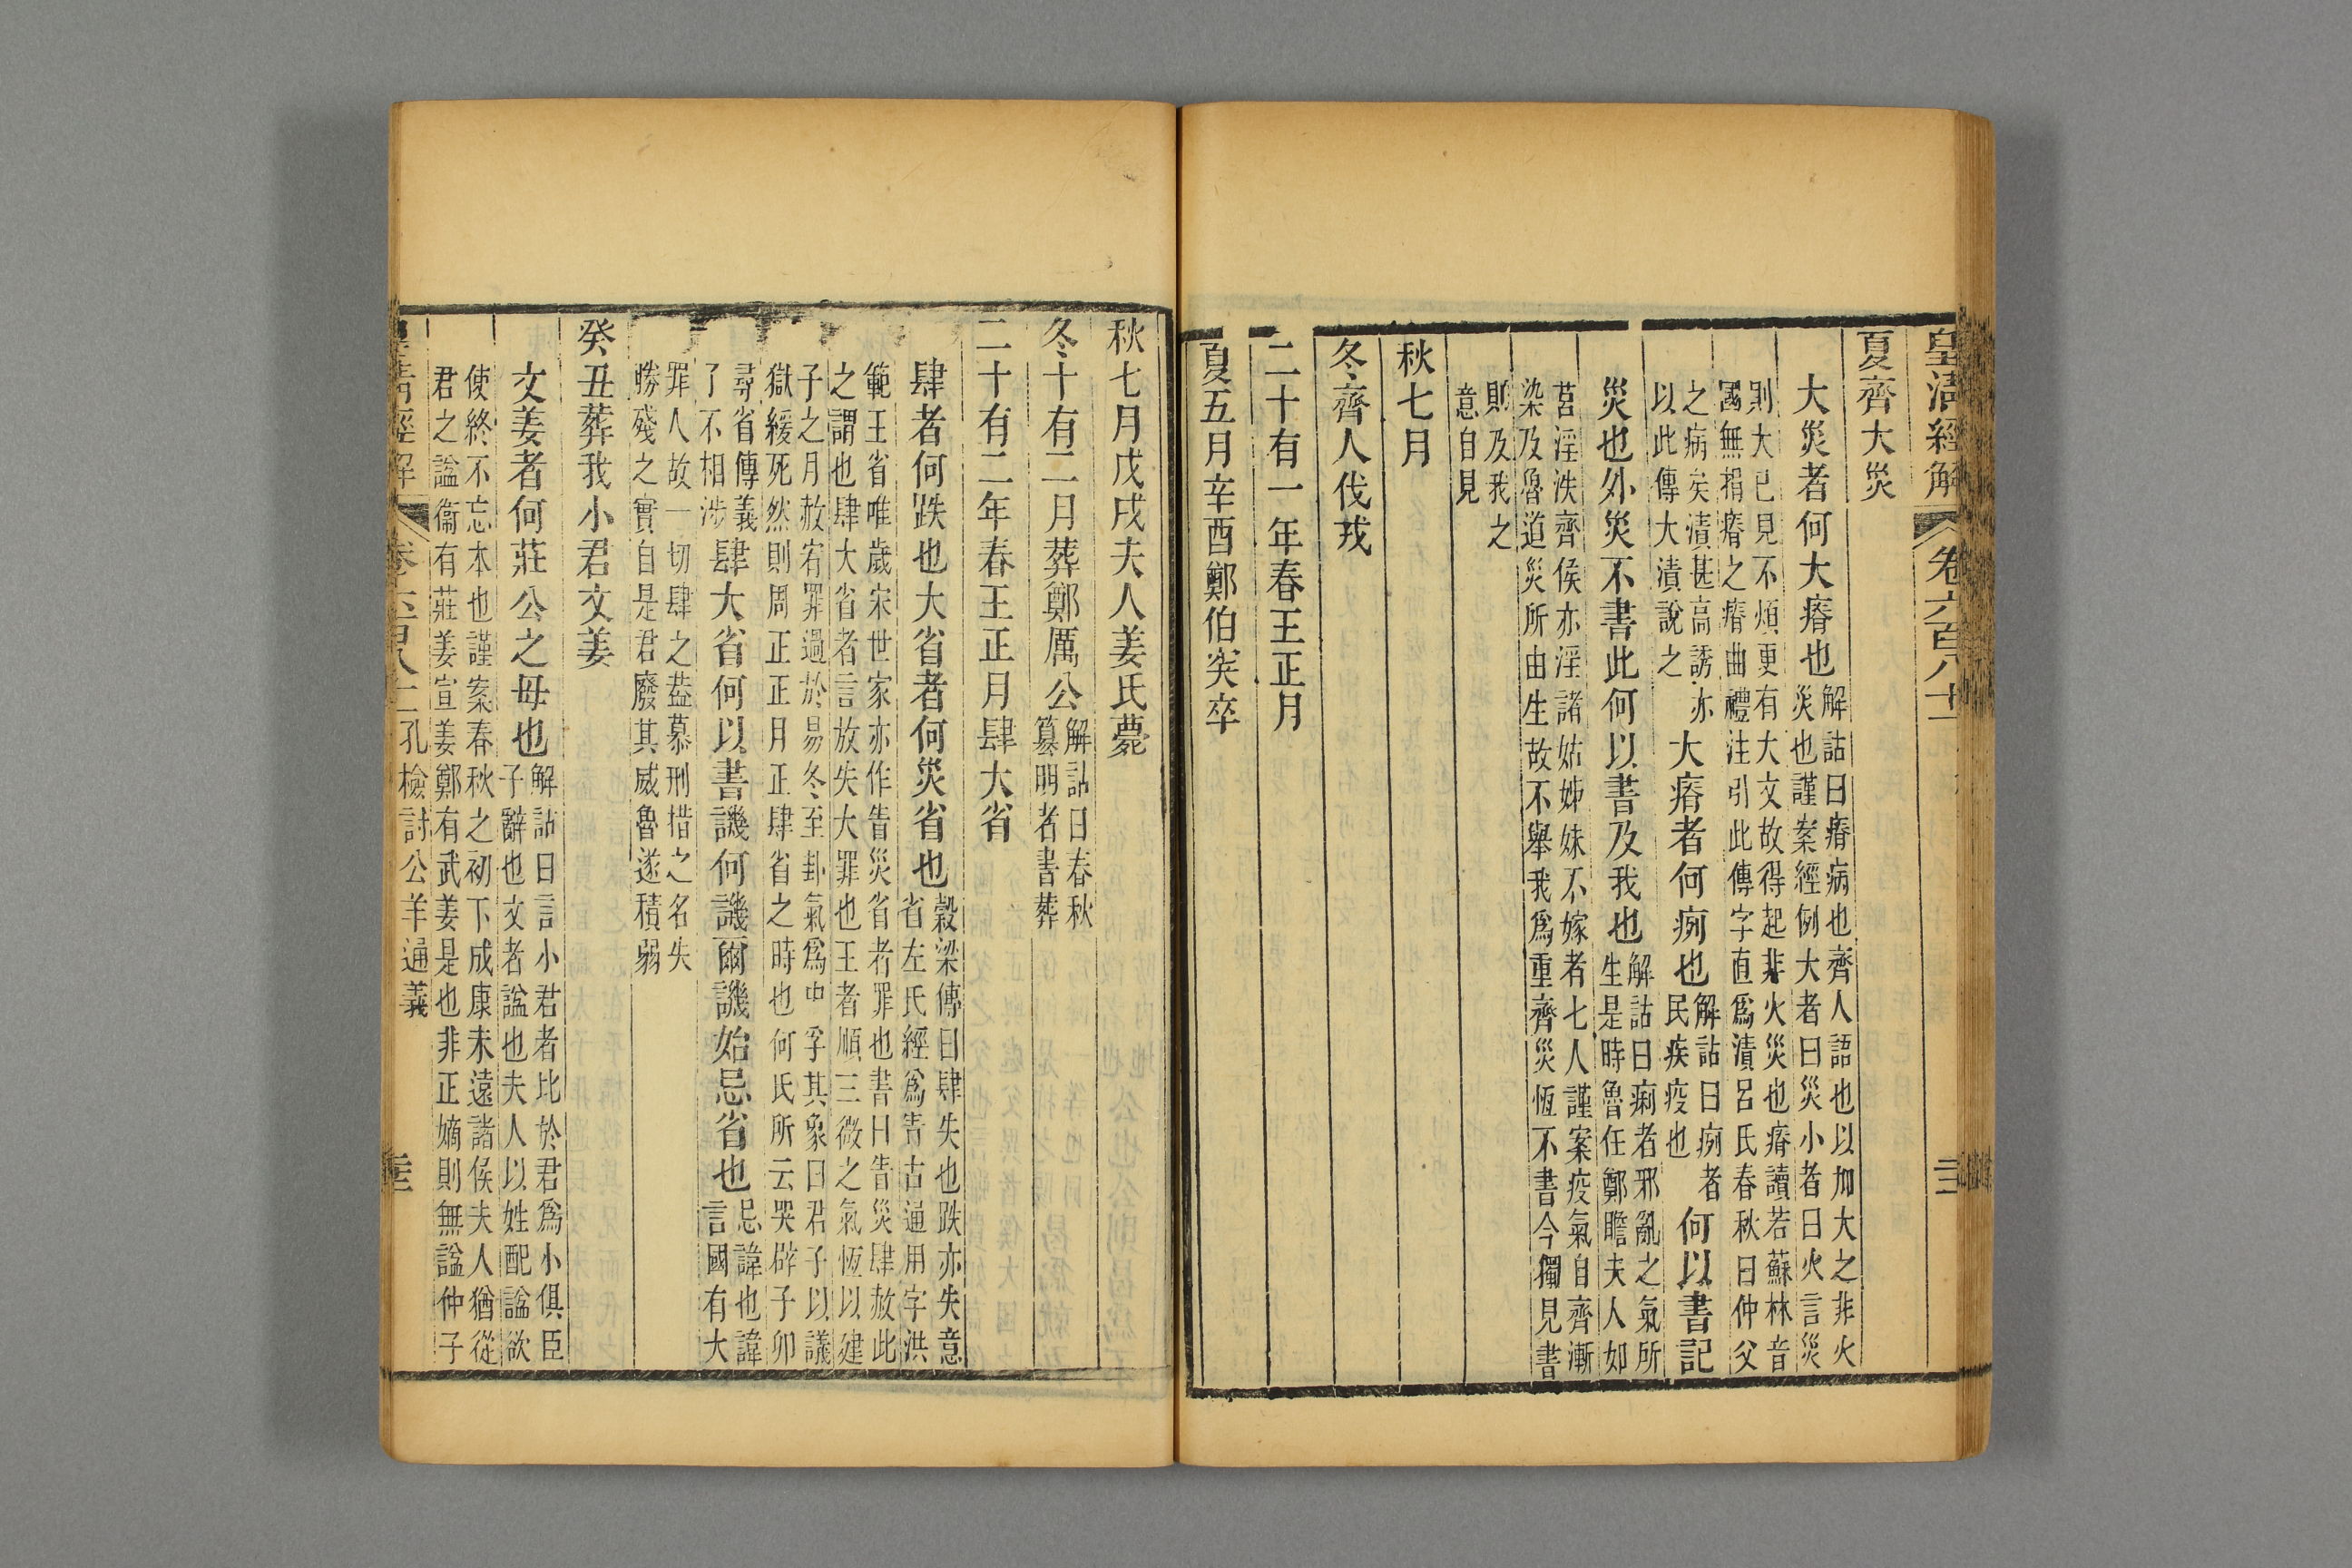 皇清經解 卷六百八十二
夏齊大災
大災者何大瘠也解詁曰瘠病也齊人語也以加大之非火
災也謹案經例大者曰災小者曰火言災
則大已見不煩更有大文故得起非火災也瘠讀若蘇林音
無捐瘠之瘠曲禮注引此傳字直爲漬呂氏春秋曰仲父
之病矣漬甚高誘亦
以此傳大漬說之
大瘠者何㾐也
解詁曰㾐者
民疾疫也
何以書記
災也外災不書此何以書及我也解詁曰痢者邪亂之氣所
生是時魯任鄭瞻夫人如
莒淫泆齊侯亦淫諸姑姊妹不嫁者七人謹案疫氣自齊漸
染及魯道災所由生故不舉我爲重齊災恆不書今獨見書
則及我之
意自見
秋七月
冬齊人伐戎
二十有一年春王正月
夏五月辛酉鄭伯突卒
秋七月戊戌夫人姜氏薨
冬十有二月葬鄭厲公解詁曰春秋
篡明者書葬
二十有二年春王正月肆大省
肆者何跌也大省者何災省也穀梁傳曰肆失也跌亦失意
省左氏經爲眚古通用字洪
範王省唯歲宋世家亦作眚災省者罪也書曰眚災肆赦此
之謂也肆大省者言放失大罪也王者順三微之氣恆以建
子之月赦宥罪過於易冬至卦氣爲中孚其象曰君子以議
獄緩死然則周正正月正肆省之時也何氏所云哭辟子卯
尋省傳義
了不相涉
肆大省何以書譏何譏爾譏始忌省也忌諱也諱
言國有大
罪人故一切肆之葢慕刑措之名失
勝殘之實自是君廢其威魯遂積弱
癸丑葬我小君文姜
文姜者何莊公之母也解詁曰言小君者比於君爲小俱臣
子辭也文者諡也夫人以姓配諡欲
使終不忘本也謹案春秋之初下成康未遠諸侯夫人猶從
君之諡衞有莊姜宣姜鄭有武姜是也非正嫡則無諡仲子
皇清經解 卷六百八十二孔檢討公羊通義